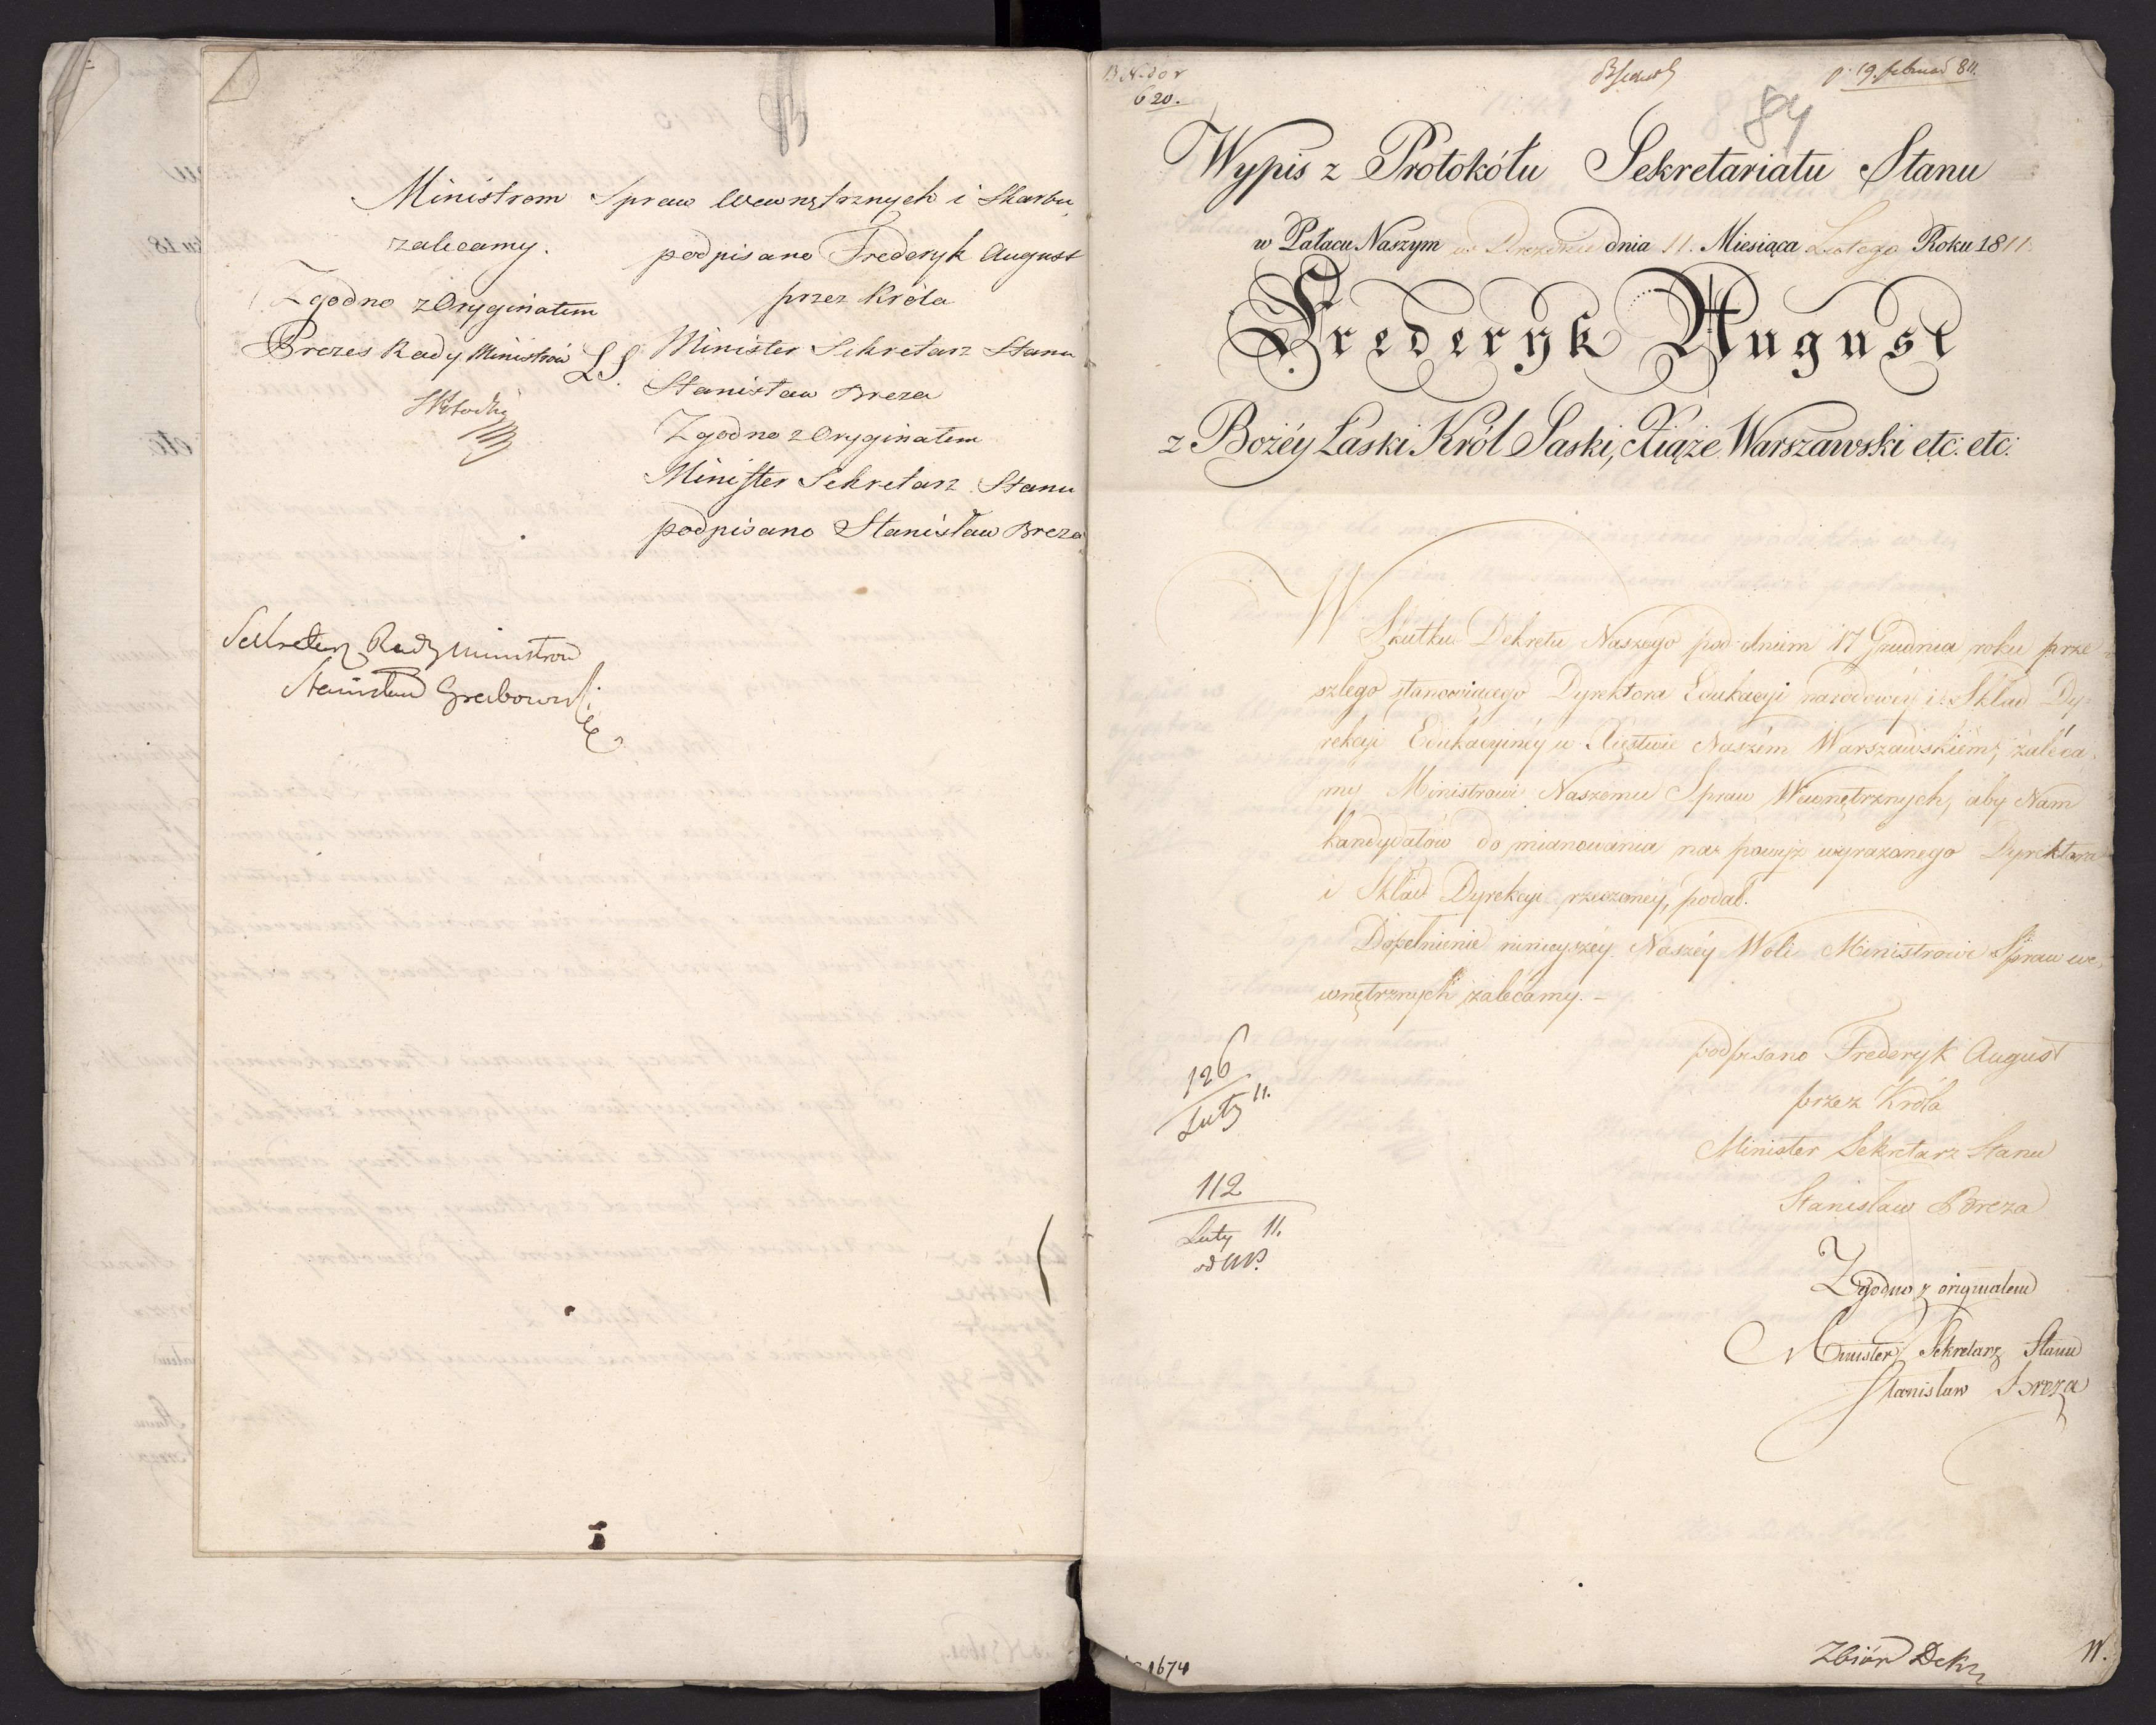 Ministrom Spraw Wewnętrznych i Skarbu
zalecamy.
podpisano Frederyk August
przez Króla
Minister Sekretarz Stanu
Stanisław Breza
Zgodno z Oryginałem
Minister Sekretarz Stanu
podpisano Stanisław Breza
Zgodno z Oryginałem
Prezes Rady Ministrów
LS.
Sekretarz Rady Ministrów
Stanisław Grabowski
620.
p. 19. februar 811.
84
Wypis z Protokółu Sekretariatu Stanu
w Pałacu Naszym w Dreznie dnia 11. Miesiąca Lutego Roku 1811.
Frederyk August
z Bożéy Łaski Król Saski, Xiąże Warszawski etc: etc:
W Skutku Dekretu Naszego pod dniem 17 Grudnia roku prze
szłego stanowiącego Dyrektora Edukacyi narodowéy i Skład Dy-
rekcyi Edukacyinéy w Xięstwie Naszém Warszawskiém, zaleca-
my Ministrowi Naszemu Spraw Wewnętrznych, aby Nam
kandydatów do mianowania na powyż wyrażonego Dyrektora
i Skład Dyrekcyi rzeczonéy, podał.
Dopełnienie ninieyszéy Naszéy Woli Ministrowi Spraw we-
wnętrznych zalecamy. -
podpisano Frederyk August
przez Króla
Minister Sekretarz Stanu
Stanisław Breza
Zgodno z originałem
Minister Sekretarz Stanu
Stanisław Breza
126
Luty 11.
112
Luty 11.
1674
Zbiór Dekr